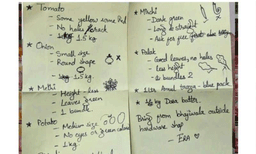 * Tomato
- Some yellow some Red
- No holes
1.5 kg
* Onion
- Small size
Round shape
1.5 kg
* Methi
- Height - less
Leaves green
- 1 bundle
* Potato
- Medium size
- No eyes or green colour
- 1 kg
* Mirchi
- Dark green
- Long & straight
* Palak
- Good leaves, no holes
- less height
- bundles 2
* 1 Ltr Amul - blue pack
* Daim butter.
Bring from bhajiwala outside
hardware shop